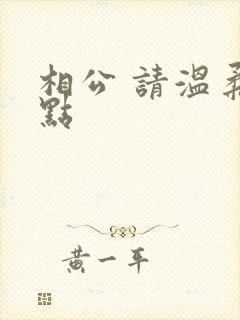 相公 請溫柔
點
黃一平